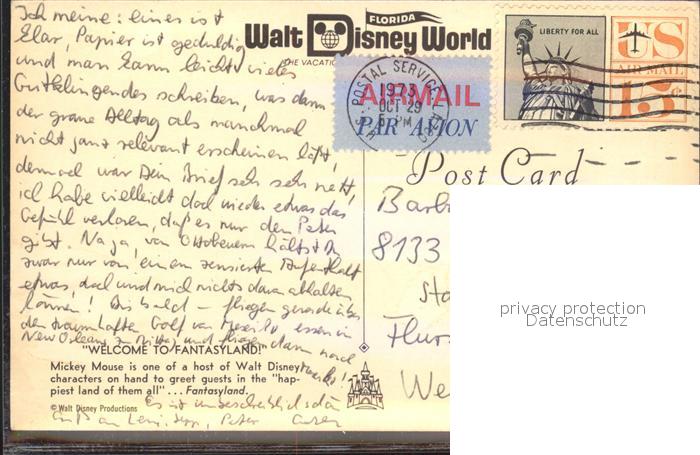 Ich meine: eines ist
klar, Papier ist geduldig
und man kann leicht vieles
Gutklingendes schreiben, was dann
der graue Alltag als manchmal
nicht ganz relevant erscheinen läßt,
dennoch war Dein Brief sehr sehr nett,
ich habe vielleicht doch wieder etwas das
Gefühl verloren, daß es nur den Peter
gibt. Na ja, von Ottobeuren hältst Du
zwar nur von einem Aufenthalt
etwas, doch und mich nicht davon abhalten
können! Bis bald – fliegen gerade über
den traumhaften Golf von Mexiko, essen in
New Orleans zu Mittag und fliegen dann nach
Mexiko!
Es ist unbeschreiblich schön
Gruß an Peter
FLORIDA
Walt Disney World
THE VACATION
AIRMAIL
PAR AVION
POSTAL SERVICE
1973
OCT 29
PM
LIBERTY FOR ALL
US
AIR MAIL
15c
Post Card
Barb
8133
Sta
We
privacy protection
Datenschutz
"WELCOME TO FANTASYLAND!"
Mickey Mouse is one of host of Walt Disney
characters on hand to greet guests in the "hap-
piest land of them all" ... Fantasyland.
© Walt Disney Productions